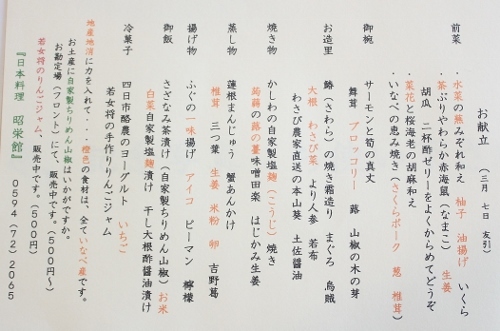 お献立 (三月 七日 友引)
前菜 ・水菜の蕪みぞれ和え 柚子 油揚げ いくら
・茶ぶりやわらか赤海鼠(なまこ) 生姜
胡瓜 二杯酢ゼリーをよくからめてどうぞ
・菜花と桜海老の胡麻和え
・いなべの恵み焼き(さくらポーク 葱 椎茸)
御椀 サーモンと筍の真丈
舞茸 ブロッコリー 蕗 山椒の木の芽
お造里 鰆(さわら)の焼き霜造り まぐろ 烏賊
大根 わさび菜 より人参 若布
わさび農家直送の本山葵 土佐醤油
焼き物 かしわの自家製塩麹(こうじ)焼き
蒟蒻の蕗の薹味噌田楽 はじかみ生姜
蒸し物 蓮根まんじゅう 蟹あんかけ
椎茸 三つ葉 生姜 米粉 卵 吉野葛
揚げ物 ふぐの一味揚げ アイコ ピーマン 檸檬
御飯 さざなみ茶漬け(自家製ちりめん山椒) お米
白菜自家製塩麹漬け 干し大根酢醤油漬け
冷菓子 四日市酪農のヨーグルト いちご
若女将の手作りりんごジャム
地産地消に力を入れて・・橙色の食材は、全ていなべ産です。
お土産に自家製ちりめん山椒はいかがですか。
お勘定場(フロント)にて、販売中です。(500円~)
若女将のりんごジャム、販売中です。(500円)
『日本料理 昭栄館』 0594(72)2065